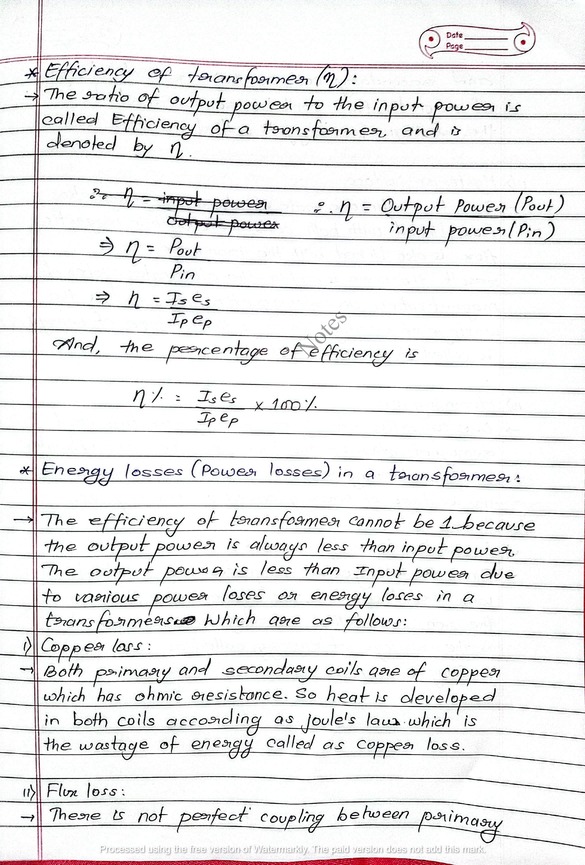 Date
Page
* Efficiency of transformer (η):
→ The ratio of output power to the input power is
called Efficiency of a transformer and is
denoted by η.
∴ η = input power / output power ∴ η = Output Power (Pout) / input power (Pin)
⇒ η = Pout / Pin
⇒ η = Is es / Ip ep
Notes
And, the percentage of efficiency is
η% = Is es / Ip ep × 100%
* Energy losses (Power losses) in a transformer:
→ The efficiency of transformer cannot be 1 because
the output power is always less than input power.
The output power is less than Input power due
to various power loses or energy loses in a
transformers which are as follows:
i) Copper loss:
→ Both primary and secondary coils are of copper
which has ohmic resistance. So heat is developed
in both coils according as joule's law which is
the wastage of energy called as copper loss.
ii) Flux loss:
→ There is not perfect coupling between primary
Processed using the free version of Watermarkly. The paid version does not add this mark.